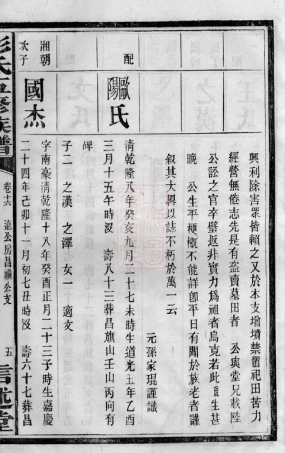 興利除害衆皆頼之又於本支增墳禁置祀田苦力
經營無倦志先是有盜賣墓田者 公與堂兄載陛
公訟之官卒壁返非實力爲祖者烏克若此噫生甚
晚 公生平梗槪不能詳卽平日有聞於族老者謹
叙其大畧以誌不朽於萬一云
元孫家琨謹識
配
歐陽氏
清乾隆八年癸亥九月二十七未時生道光五年乙酉
三月十五午時歿 壽八十三葬昌旗山壬山丙向有
碑
子二 之漢 之澤 女一 適文
湘朝次子
國杰
字南豪清乾隆十八年癸酉正月二十三子時生嘉慶
二十四年己卯十一月初七丑時歿 壽六十七葬昌
彭氏五修族譜
卷十六
遠公房昌礦公支
五
信述堂